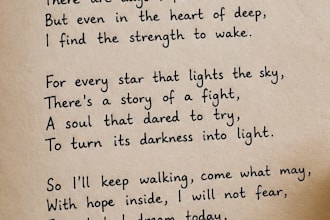 There are days I
But even in the heart of deep,
I find the strength to wake.
For every star that lights the sky,
There's a story of a fight,
A soul that dared to try,
To turn its darkness into light.
So I'll keep walking, come what may,
With hope inside, I will not fear,
dream today,